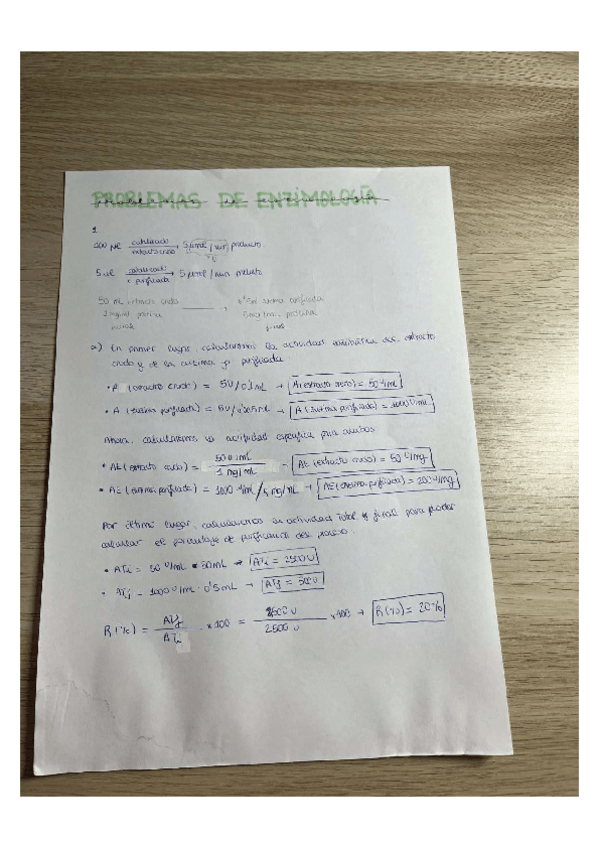 PROBLEMAS DE ENZIMOLOGÍA
1.
100 µL catalizando 5 µmol / min producto
5 µL 5 µmol / min
50 mL extracto crudo 0'5 mL enzima purificada
proteína
a) En primer lugar, calcularemos la actividad enzimática del extracto
crudo y de la enzima ya purificada
(extracto crudo) = 5U/0,1 mL → A (extracto crudo) = 50 U/mL
• A (enzima purificada) = → A (enzima purificada) = 1000 U/mL
Ahora, calcularemos la actividad específica para ambos
• AE (extracto crudo) = 50 U/mL / 1 mg/mL → AE (extracto crudo) = 50 U/mg
• AE (enzima purificada) = 1000 U/mL / 5 mg/mL → AE (enzima purificada) = 200 U/mg
Por último lugar, calcularemos la actividad total y final para poder
calcular el porcentaje de purificación del proceso:
• ATi = 50 U/mL • 50 mL → ATi = 2500 U
• = 1000 U/mL · 0'5 mL → ATf = 500 U
R (%) = ATf / ATi × 100 = / 2500 U × 100 → R (%) = 20%